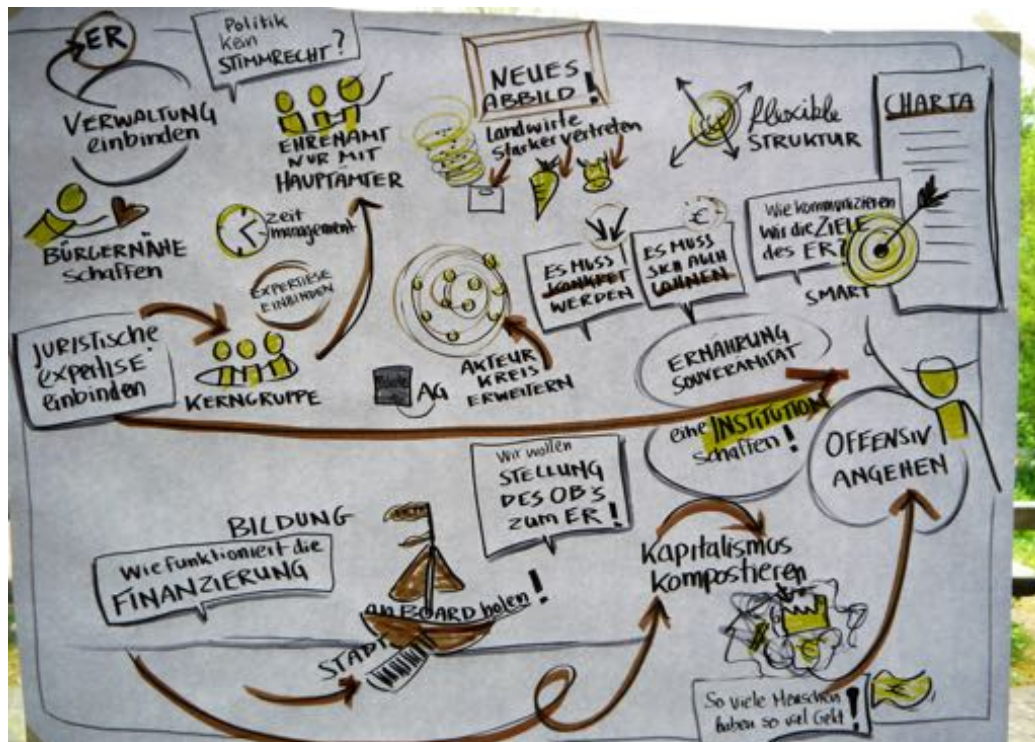 ER
VERWALTUNG
einbinden
Politik
kein
STIMMRECHT?
EHRENAMT
NUR MIT
HAUPTÄMTER
NEUES
ABBILD!
Landwirte
stärker vertreten
flexible
STRUKTUR
CHARTA
BÜRGERNÄHE
schaffen
zeit
management
EXPERTIESE
EINBINDEN
ES MUSS
KONKRET
WERDEN
€
ES MUSS
SICH AUCH
LOHNEN
Wie kommunizieren
wir die ZIELE
des ER?
SMART
JURISTISCHE
expertise
einbinden
KERNGRUPPE
AG
AKTEUR
KREIS
ERWEITERN
ERNÄHRUNG
SOUVERÄNITÄT
eine INSTITUTION
schaffen!
OFFENSIV
ANGEHEN
Wir wollen
STELLUNG
DES OB'S
zum ER!
BILDUNG
Wie funktioniert die
FINANZIERUNG
an BOARD holen!
STADT
Kapitalismus
Kompostieren
So viele Menschen
haben so viel Geld!